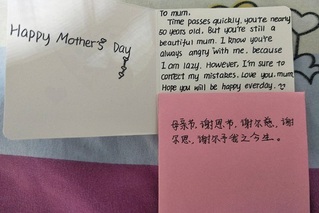 Happy Mother's Day
To mum.
Time passes quickly, you're nearly
60 years old. But you're still a
beautiful mum. I know you're
always angry with me. because
I am lazy. However, I'm sure to
correct my mistakes. Love you, mum
Hope you will be happy everday.
母亲节，谢恩节，谢尔慈，谢
尔恩，谢尔予我之今生。